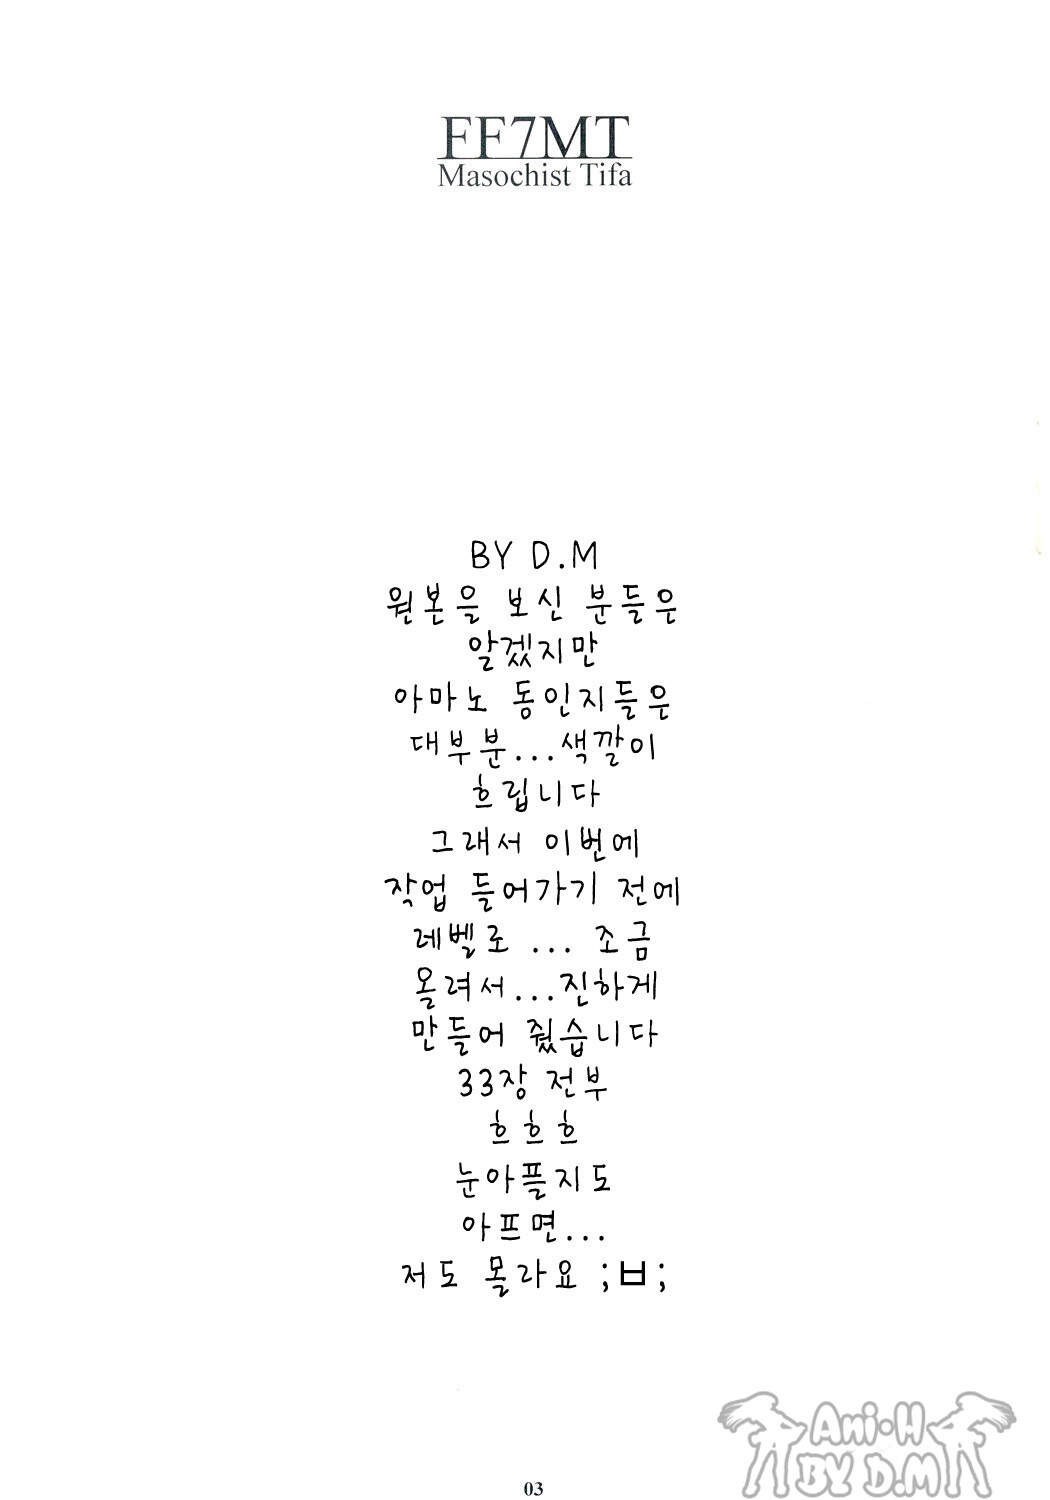 FF7MT
Masochist Tifa
BY D.M
원본을 보신 분들은
알겠지만
아마노 동인지들은
대부분...색깔이
흐립니다
그래서 이번에
작업 들어가기 전에
레벨로 ... 조금
올려서...진하게
만들어 줬습니다
33장 전부
흐흐흐
눈아플지도
아프면...
저도 몰라요 ;ㅂ;
Ani•H
BY D.M
03